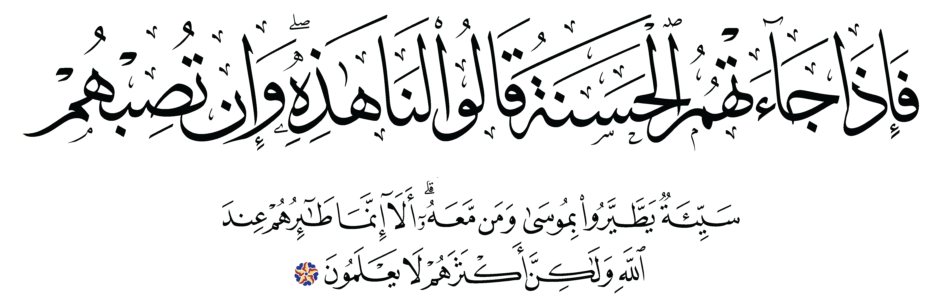 فَإِذَا جَآءَتْهُمُ ٱلْحَسَنَةُ قَالُوا۟ لَنَا هَٰذِهِۦ ۖ وَإِن تُصِبْهُمْ
سَيِّئَةٌ يَطَّيَّرُوا۟ بِمُوسَىٰ وَمَن مَّعَهُۥٓ ۗ أَلَآ إِنَّمَا طَٰٓئِرُهُمْ عِندَ
ٱللَّهِ وَلَٰكِنَّ أَكْثَرَهُمْ لَا يَعْلَمُونَ